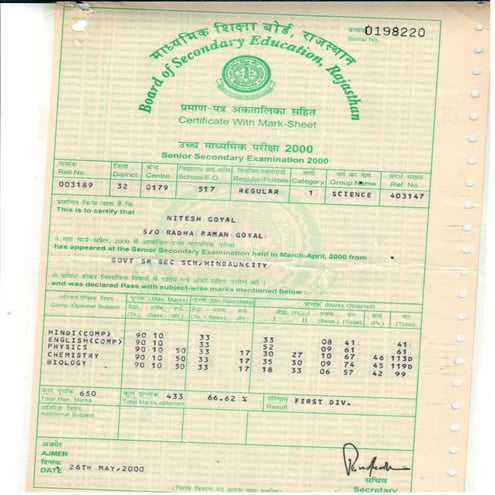 क्रमांक 0198220
Serial No.
माध्यमिक शिक्षा बोर्ड, राजस्थान
Board of Secondary Education, Rajasthan
प्रमाण-पत्र अंकतालिका सहित
Certificate With Mark-Sheet
उच्च माध्यमिक परीक्षा 2000
Senior Secondary Examination 2000
नामांक जिला केन्द्र वर्ग का नाम संदर्भ संख्या
Roll No. District Centre School/P.O. Regular/Private Category Group Name Ref. No.
003189 32 0179 517 REGULAR 1 SCIENCE 403147
प्रमाणित किया जाता है कि
This is to certify that
NITESH GOYAL
S/O RADHA RAMAN GOYAL
has appeared at the Senior Secondary Examination held in March-April, 2000 from
GOVT SR SEC SCH, HINDAUNCITY
and was declared Pass with subject-wise marks mentioned below :
Comp./Optional Subject (Th.) (Sess.) (Pr.) (Th. + Sess.) (Pr.) I (Th.) II (Sess.) (Th.) (Pr.) (Total)
HINDI(COMP) 90 10 33 33 08 41 41
ENGLISH(COMP) 90 10 33 52 09 61 61
PHYSICS 90 10 50 33 17 30 27 10 67 46 113D
CHEMISTRY 90 10 50 33 17 35 30 09 74 45 119D
BIOLOGY 90 10 50 33 17 18 33 06 57 42 99
कुल पूर्णांक 650 433 66.62 % परिणाम FIRST DIV.
Total Max. Marks Total Marks obtained Result
अतिरिक्त विषय
Additional Subject
अजमेर
AJMER
दिनांक
DATE 26TH MAY, 2000
सचिव
Secretary